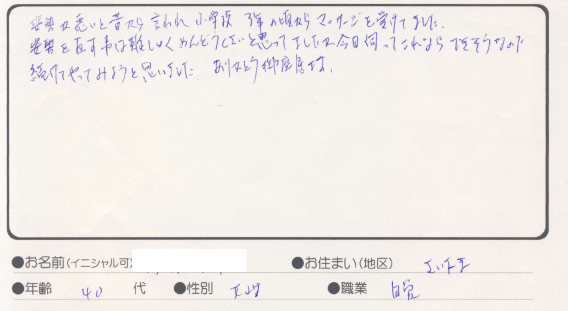 姿勢が悪いと昔から言われ小学校 3年の頃からマッサージを受けてました。
姿勢を直す事は難しくめんどうくさいと思ってましたが今日伺ってこれならできそうなので
続けてやってみようと思いました ありがとう御座居ます。
●お名前(イニシャル可) ●お住まい(地区) さいたま
●年齢 40 代 ●性別 女性 ●職業 自営